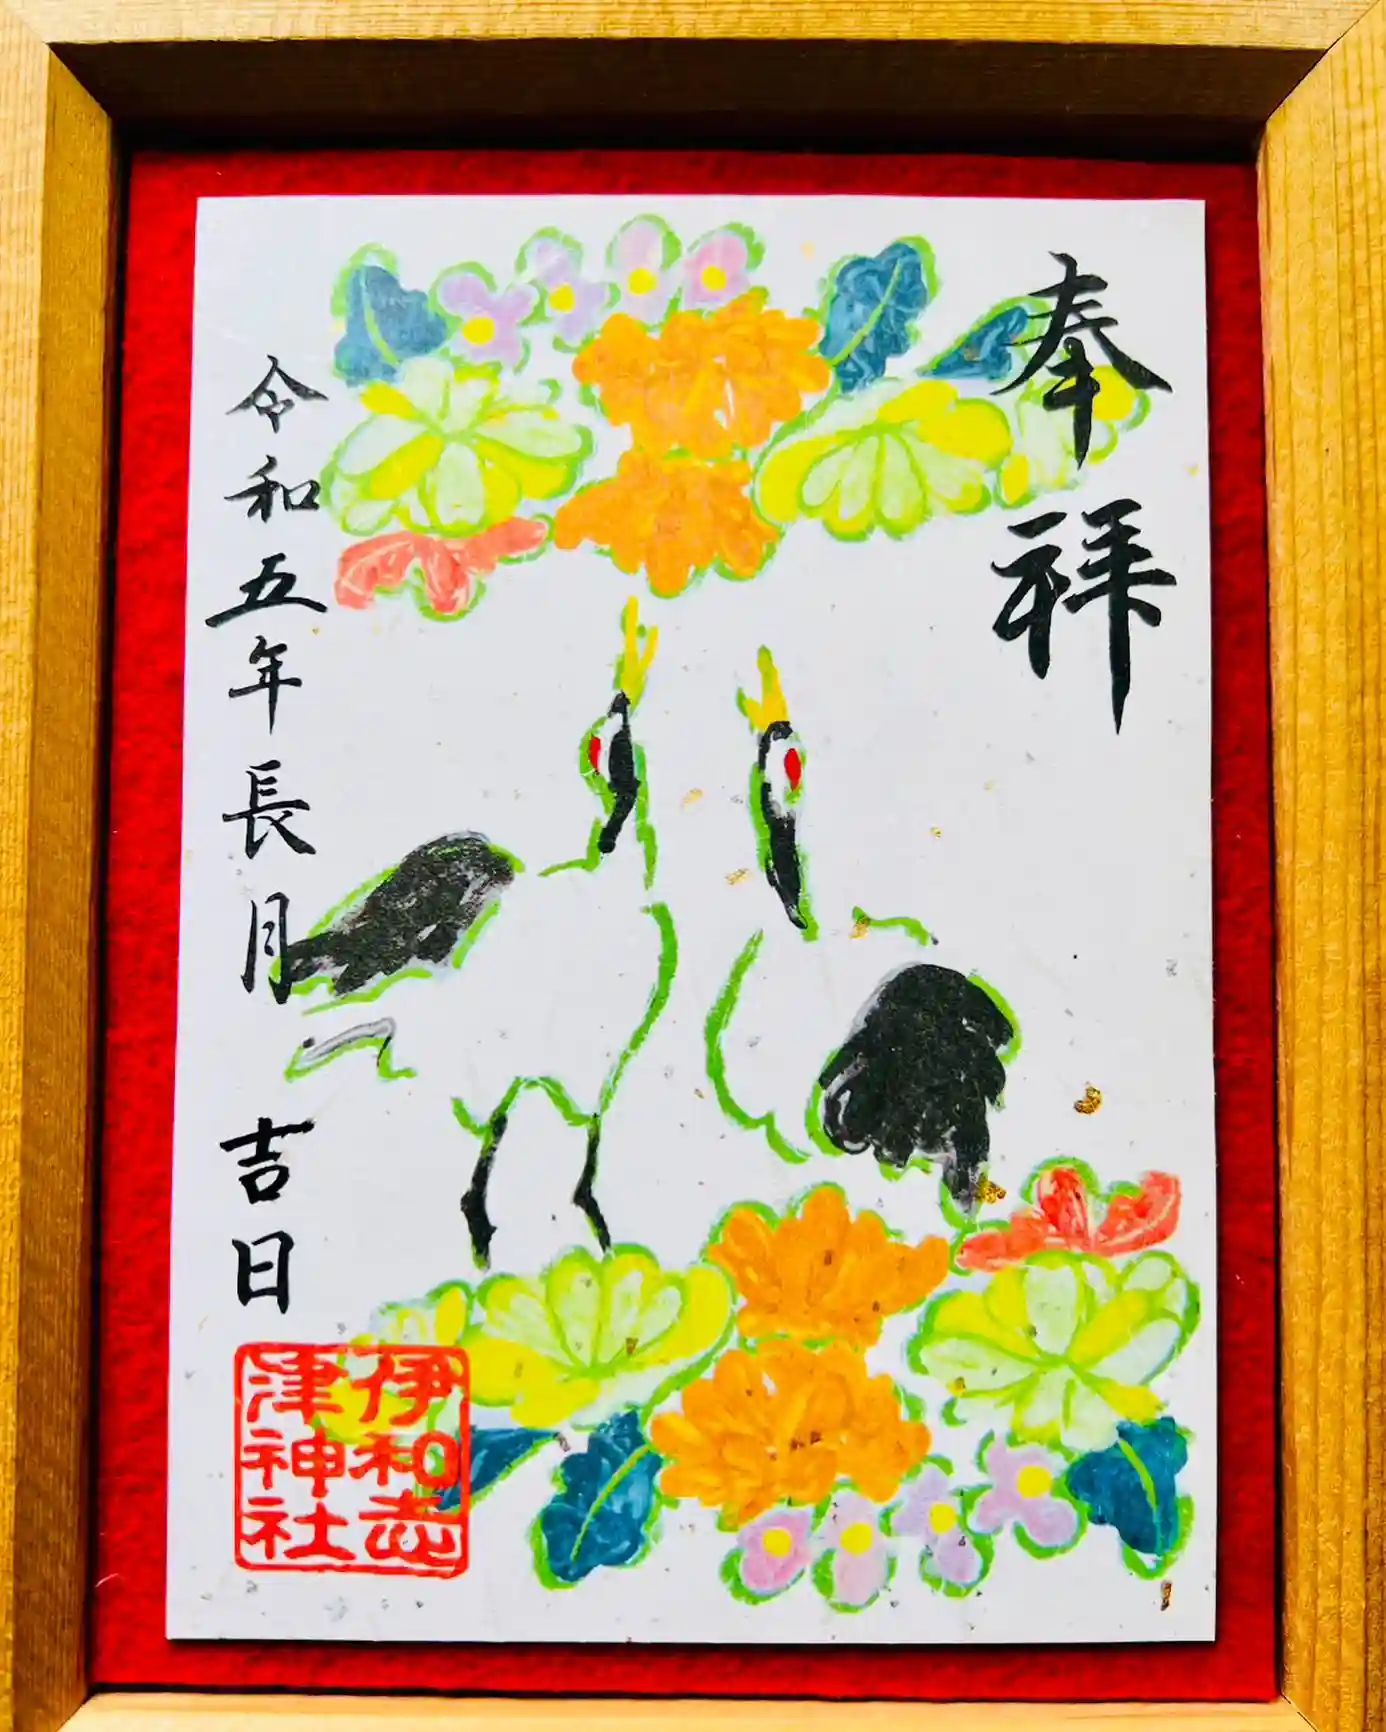 奉拝
令和五年長月 吉日
伊和志
津神社